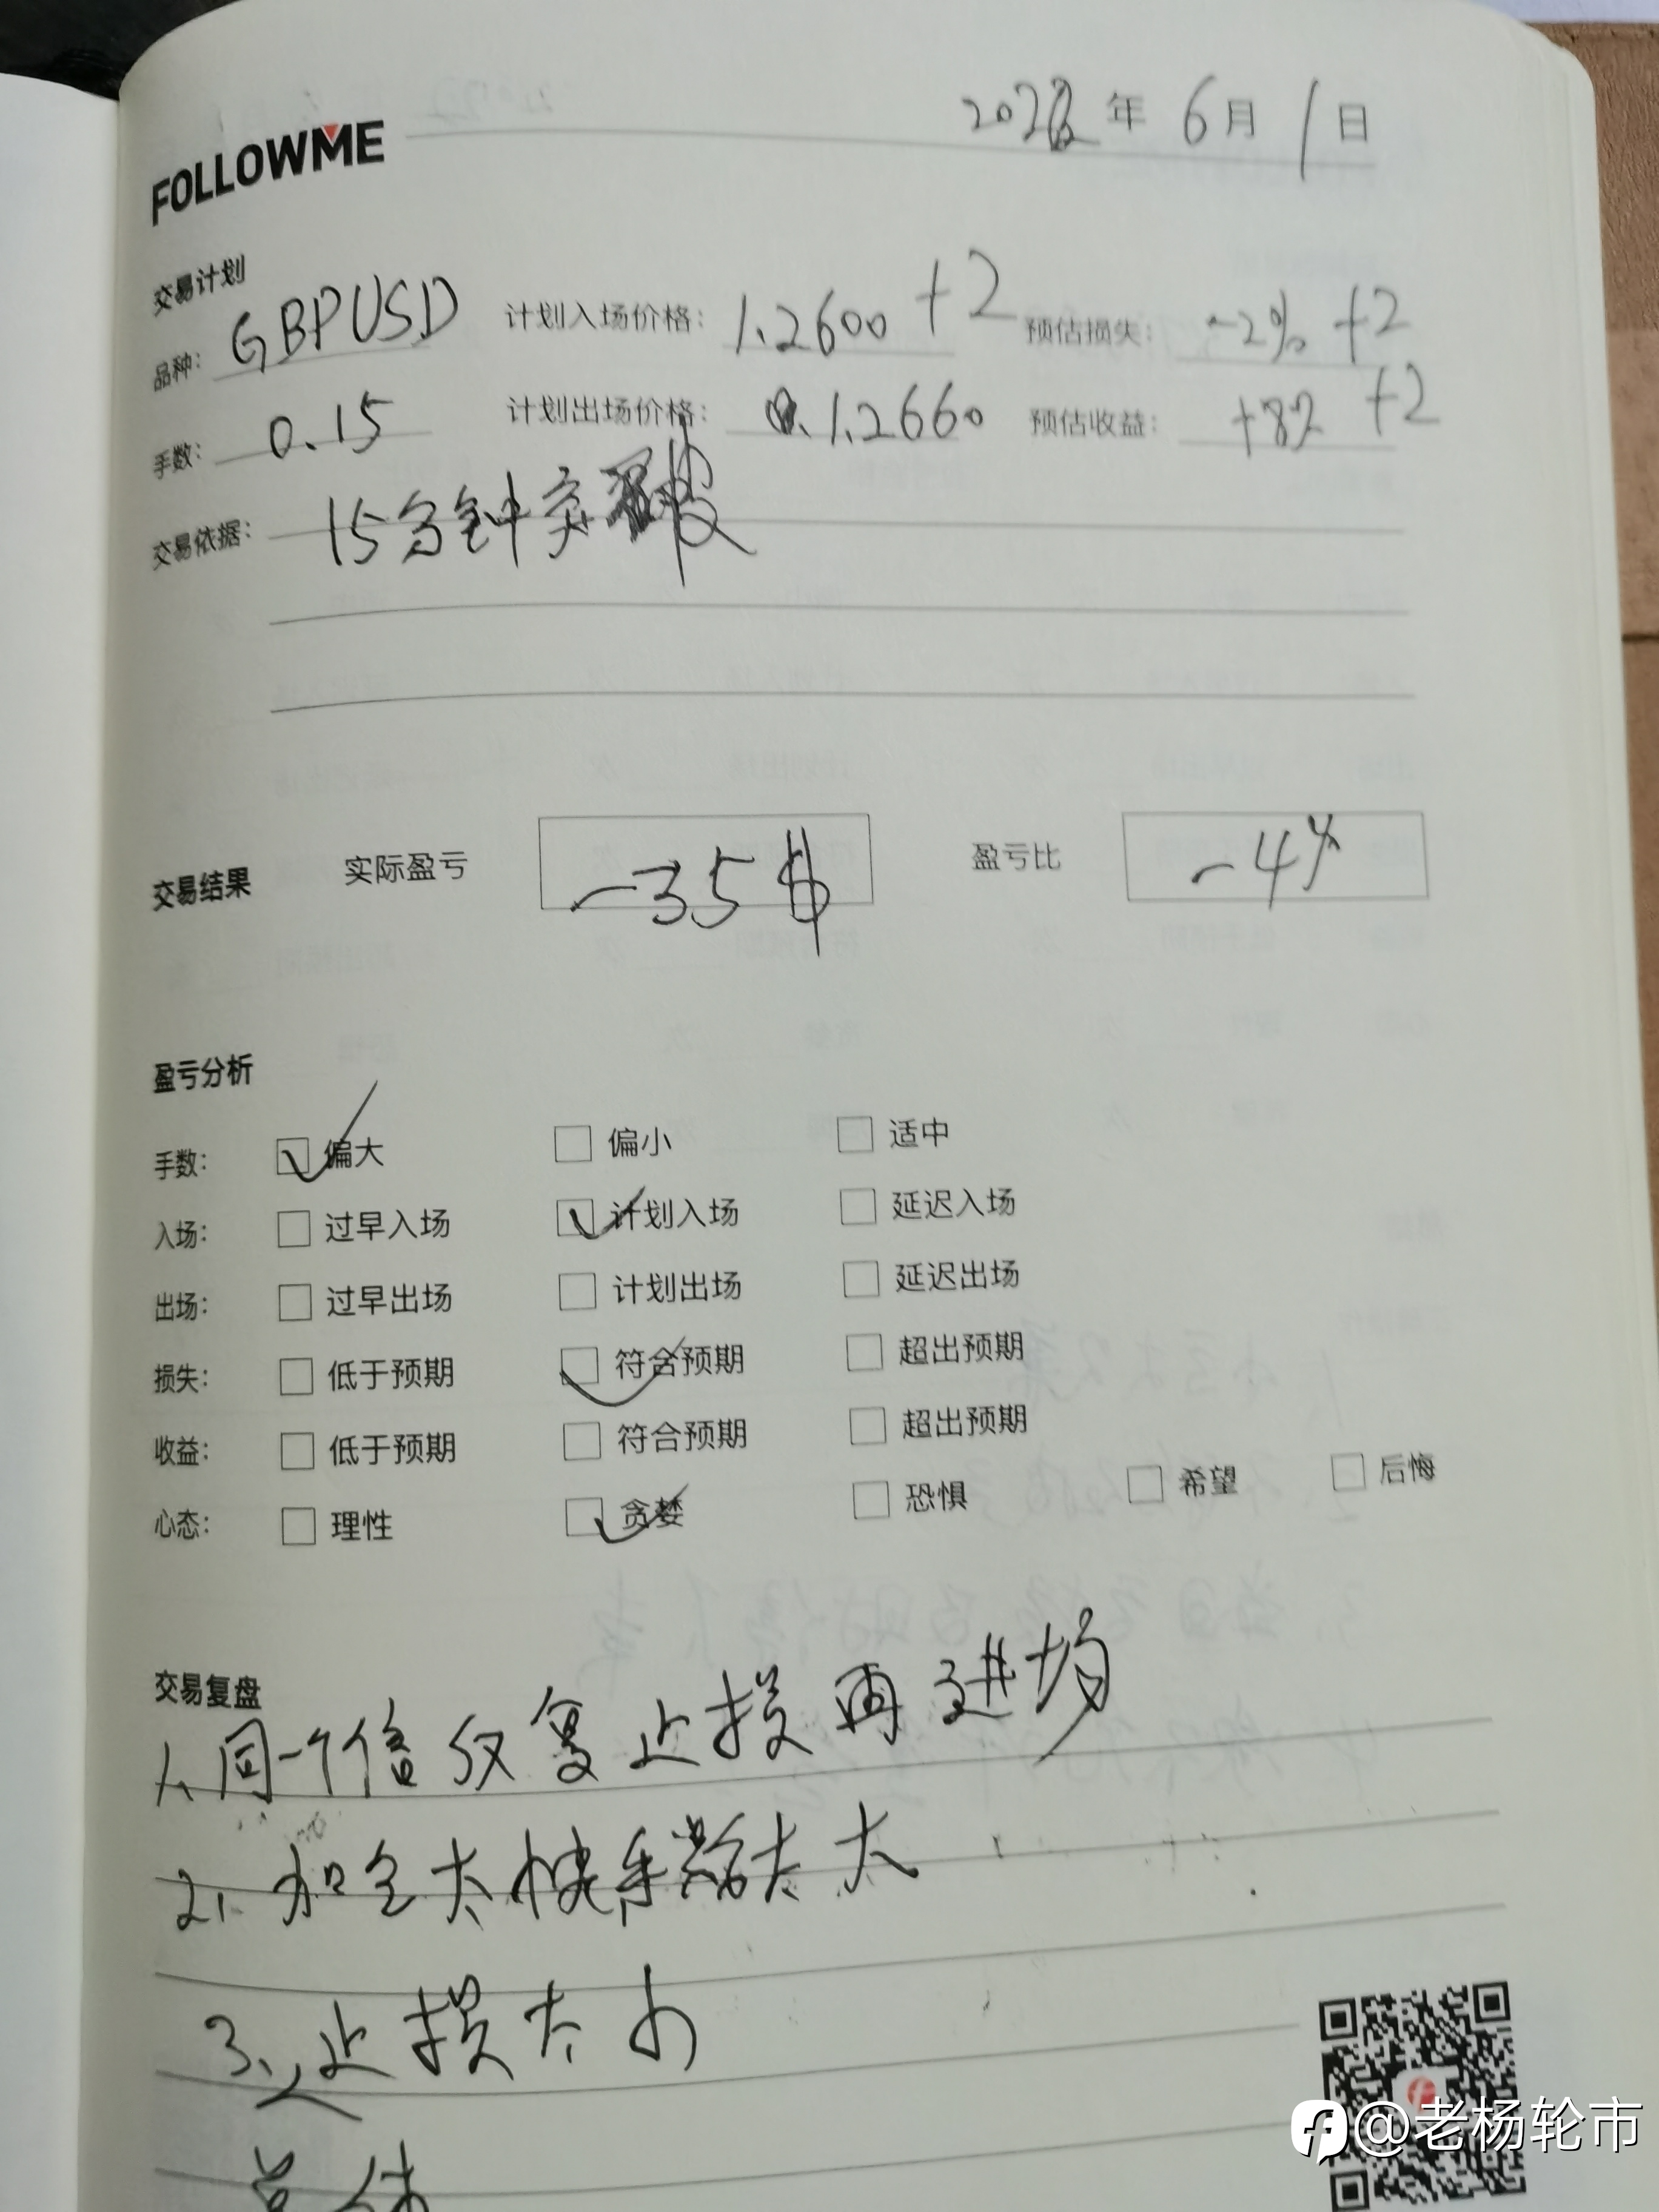 FOLLOWME
2022年6月1日
交易计划
品种: GBPUSD 计划入场价格: 1.2600 +2 预估损失: -2% +2
手数: 0.15 计划出场价格: 1.2660 预估收益: +8% +2
交易依据: 15分钟突破
交易结果 实际盈亏 -35$ 盈亏比 -4%
盈亏分析
手数: 偏大 偏小 适中
入场: 过早入场 计划入场 延迟入场
出场: 过早出场 计划出场 延迟出场
损失: 低于预期 符合预期 超出预期
收益: 低于预期 符合预期 超出预期
心态: 理性 贪婪 恐惧 希望 后悔
交易复盘
1、同一个 止损再进场
2、加仓太快手数太大
3、止损太小
总结
@老杨轮市